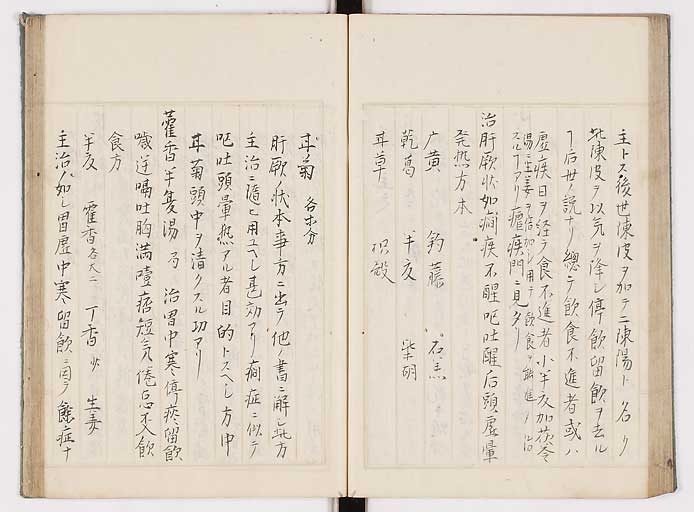 主トス後世陳皮ヲ加テ二陳湯ト名ク
此陳皮ヲ以気ヲ降シ停飲留飲ヲ去ル
ト后世ノ説ナリ總テ飲食不進者或ハ
虚疾日ヲ経テ食不進者小半夏加茯苓
湯ニ生姜ヲ倍加シ用テ飲食ヲ能進ノ
スルヿアリ瘧疾門ニ見タリ
治肝厥状如癇疾不醒呕吐醒后頭虚暈
発熱方本
广黄 鈎藤 石羔
乾葛 半夏 柴胡
甘草 枳殻
甘菊 各等分
肝厥ノ状本事方ニ出テ他ノ書ニ解シ此方
主治ニ随ヒ用ユヘシ甚効アリ癇症ニ似テ
呕吐頭暈熱アル者目的トスヘシ方中
甘菊頭中ヲ清クスル功アリ
藿香半夏湯 乃 治胃中寒停痰留飲
噦逆嘔吐胸満噎痞短気倦怠不入飲
食方
半夏 藿香各大二 丁香少 生姜
主治ノ如シ胃虚中寒留飲ニ因テ餘症ナ